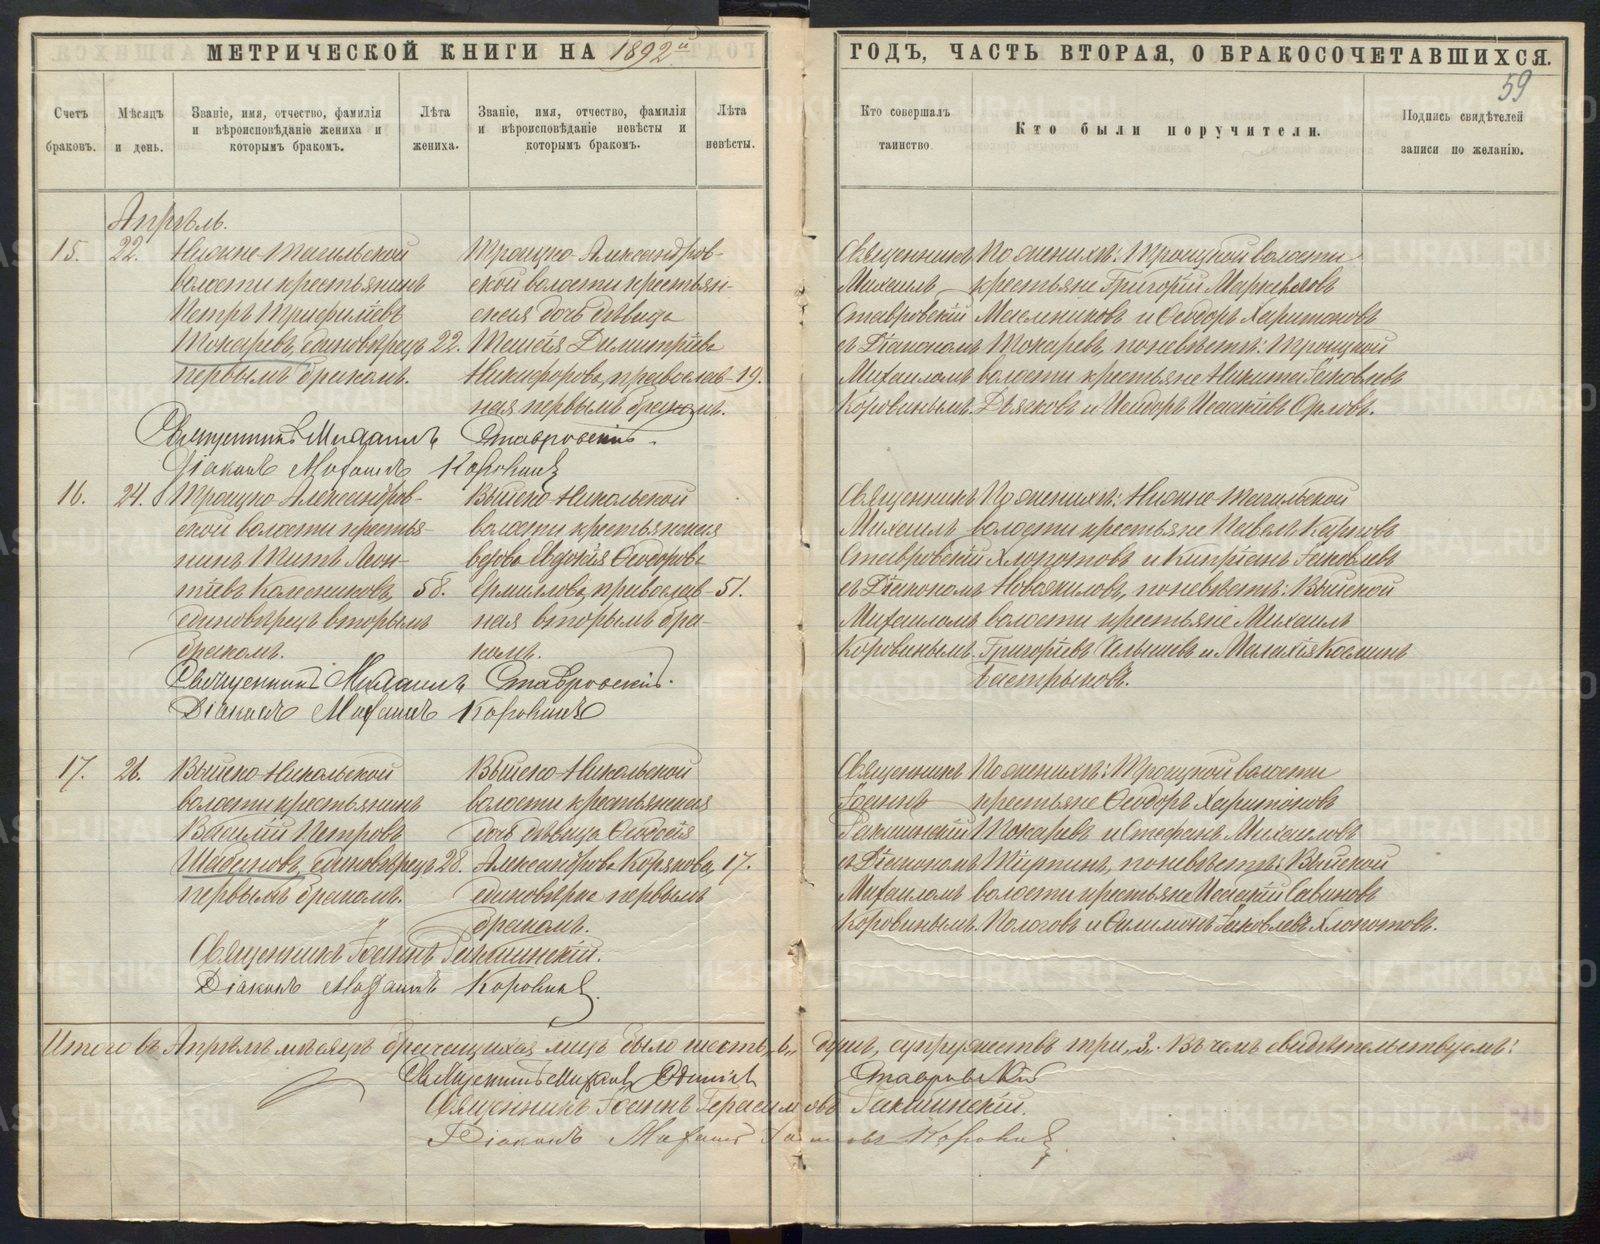 МЕТРИЧЕСКОЙ КНИГИ НА 1892й
ГОДЪ, ЧАСТЬ ВТОРАЯ, О БРАКОСОЧЕТАВШИХСЯ.
59
Счетъ браковъ.
Мѣсяцъ и день.
Званіе, имя, отчество, фамилія
и вѣроисповѣданіе жениха и
которымъ бракомъ.
Лѣта жениха.
Званіе, имя, отчество, фамилія
и вѣроисповѣданіе невѣсты и
которымъ бракомъ.
Лѣта невѣсты.
Кто совершалъ таинство
Кто были поручители.
Подпись свидѣтелей
записи по желанію.
Апрѣль.
15.
22.
Нижне-Тагильской
волости крестьянинъ
Петръ Трифиліевъ
Токаревъ, единовѣрецъ
первымъ бракомъ.
22.
Троицко-Александров-
ской волости крестьян-
ская дочь дѣвица
Димитріева
Никифорова, православ-
ная первымъ бракомъ.
19.
Священникъ
Михаилъ
Ставровскій
съ Діакономъ
Михаиломъ
Коровинымъ.
По женихѣ: Троицкой волости
крестьяне Григорій Маркеловъ
Масленниковъ и Ѳеодоръ Харитоновъ
Токаревъ, по невѣстѣ: Троицкой
волости крестьяне Никита Іаковлевъ
Дьяковъ и Исидоръ Исаакіевъ Орловъ.
Священникъ Михаилъ Ставровскій.
Діаконъ Михаилъ Коровинъ
16.
24.
Троицко-Александров-
ской волости крестья
нинъ Титъ Леон-
тіевъ Колесниковъ,
единовѣрецъ вторымъ
бракомъ.
58.
Выйско-Никольской
волости крестьянская
вдова Евдокія Ѳеодорова
Ермилова, православ-
ная вторымъ бра-
комъ.
51.
Священникъ
Михаилъ
Ставровскій
съ Діакономъ
Михаиломъ
Коровинымъ.
По женихѣ: Нижне-Тагильской
волости крестьяне Павелъ Карповъ
Хлопотовъ и Кипріанъ Іаковлевъ
Новожиловъ, по невѣстѣ: Выйской
волости крестьяне Михаилъ
Григоріевъ и Малахія Косминъ
Бастрыковъ.
Священникъ Михаилъ Ставровскій.
Діаконъ Михаилъ Коровинъ
17.
26.
Выйско-Никольской
волости крестьянинъ
Василій Петровъ
Шабановъ, единовѣрецъ
первымъ бракомъ.
28.
Выйско-Никольской
волости крестьянская
дочь дѣвица Ѳеодосія
Александрова Корякова,
единовѣрка первымъ
бракомъ.
17.
Священникъ
Іоаннъ
съ Діакономъ
Михаиломъ
Коровинымъ.
По женихѣ: Троицкой волости
крестьяне Ѳеодоръ Харитоновъ
Токаревъ и Стефанъ Михаиловъ
по невѣстѣ: Выйской
волости крестьяне Исаакій Савиновъ
Пологовъ и Филимонъ Іаковлевъ Хлопотовъ.
Священникъ Іоаннъ
Діаконъ Михаилъ Коровинъ
Итого въ Апрѣлѣ мѣсяцѣ брачащихся лицъ было шесть „6„ душъ, супружествъ три „3„. Въ чемъ свидѣтельствуемъ:
Священникъ Михаилъ Ставровскій
Священникъ Іоаннъ Герасимовъ
Діаконъ Михаилъ Коровинъ
METRIKI.GASO-URAL.RU